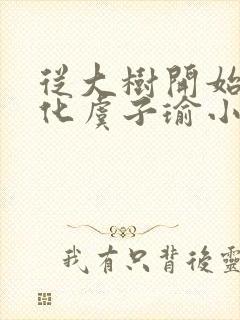 從大樹開始
化虞子瑜小
我有只背後靈